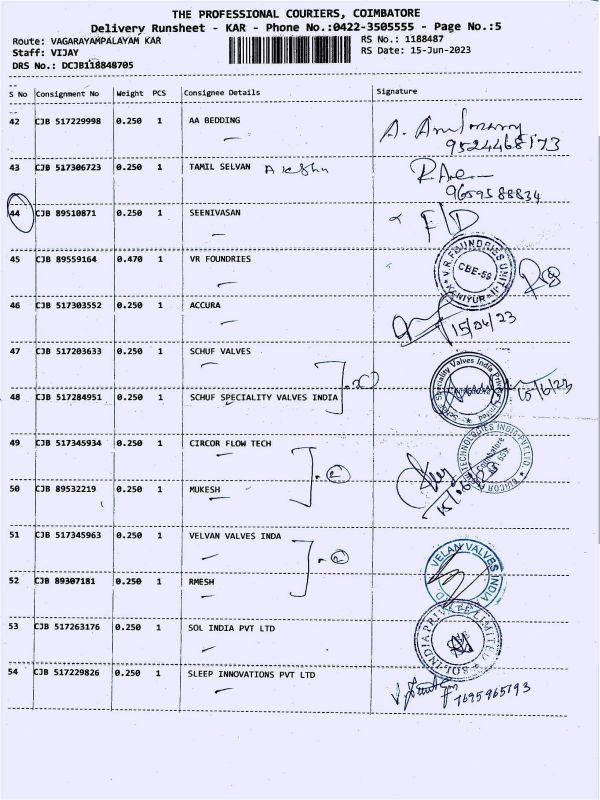 THE PROFESSIONAL COURIERS, COIMBATORE
Delivery Runsheet - KAR - Phone No.:0422-3505555 - Page No.:5
Route: VAGARAYAMPALAYAM KAR
RS No.: 1188487
Staff: VIJAY
RS Date: 15-Jun-2023
DRS No.: DCJB118848705
S No Consignment No Weight PCS Consignee Details Signature
42 CJB 517229998 0.250 1 AA BEDDING
9524468173
43 CJB 517306723 0.250 1 TAMIL SELVAN
9659588834
44 CJB 89510871 0.250 1 SEENIVASAN
F/D
45 CJB 89559164 0.470 1 VR FOUNDRIES
V.R.FOUNDRIES UNIT-II KANIYUR
CBE-59
46 CJB 517303552 0.250 1 ACCURA
15/06/23
47 CJB 517203633 0.250 1 SCHUF VALVES
48 CJB 517284951 0.250 1 SCHUF SPECIALITY VALVES INDIA
Speciality Valves India Private Limited
15/6/23
49 CJB 517345934 0.250 1 CIRCOR FLOW TECH
TECHNOLOGIES INDIA PVT.LTD
Coimbatore
50 CJB 89532219 0.250 1 MUKESH
51 CJB 517345963 0.250 1 VELVAN VALVES INDA
VELAN VALVES INDIA
52 CJB 89307181 0.250 1 RMESH
53 CJB 517263176 0.250 1 SOL INDIA PVT LTD
SOL INDIA PRIVATE LIMITED
54 CJB 517229826 0.250 1 SLEEP INNOVATIONS PVT LTD
7695965193